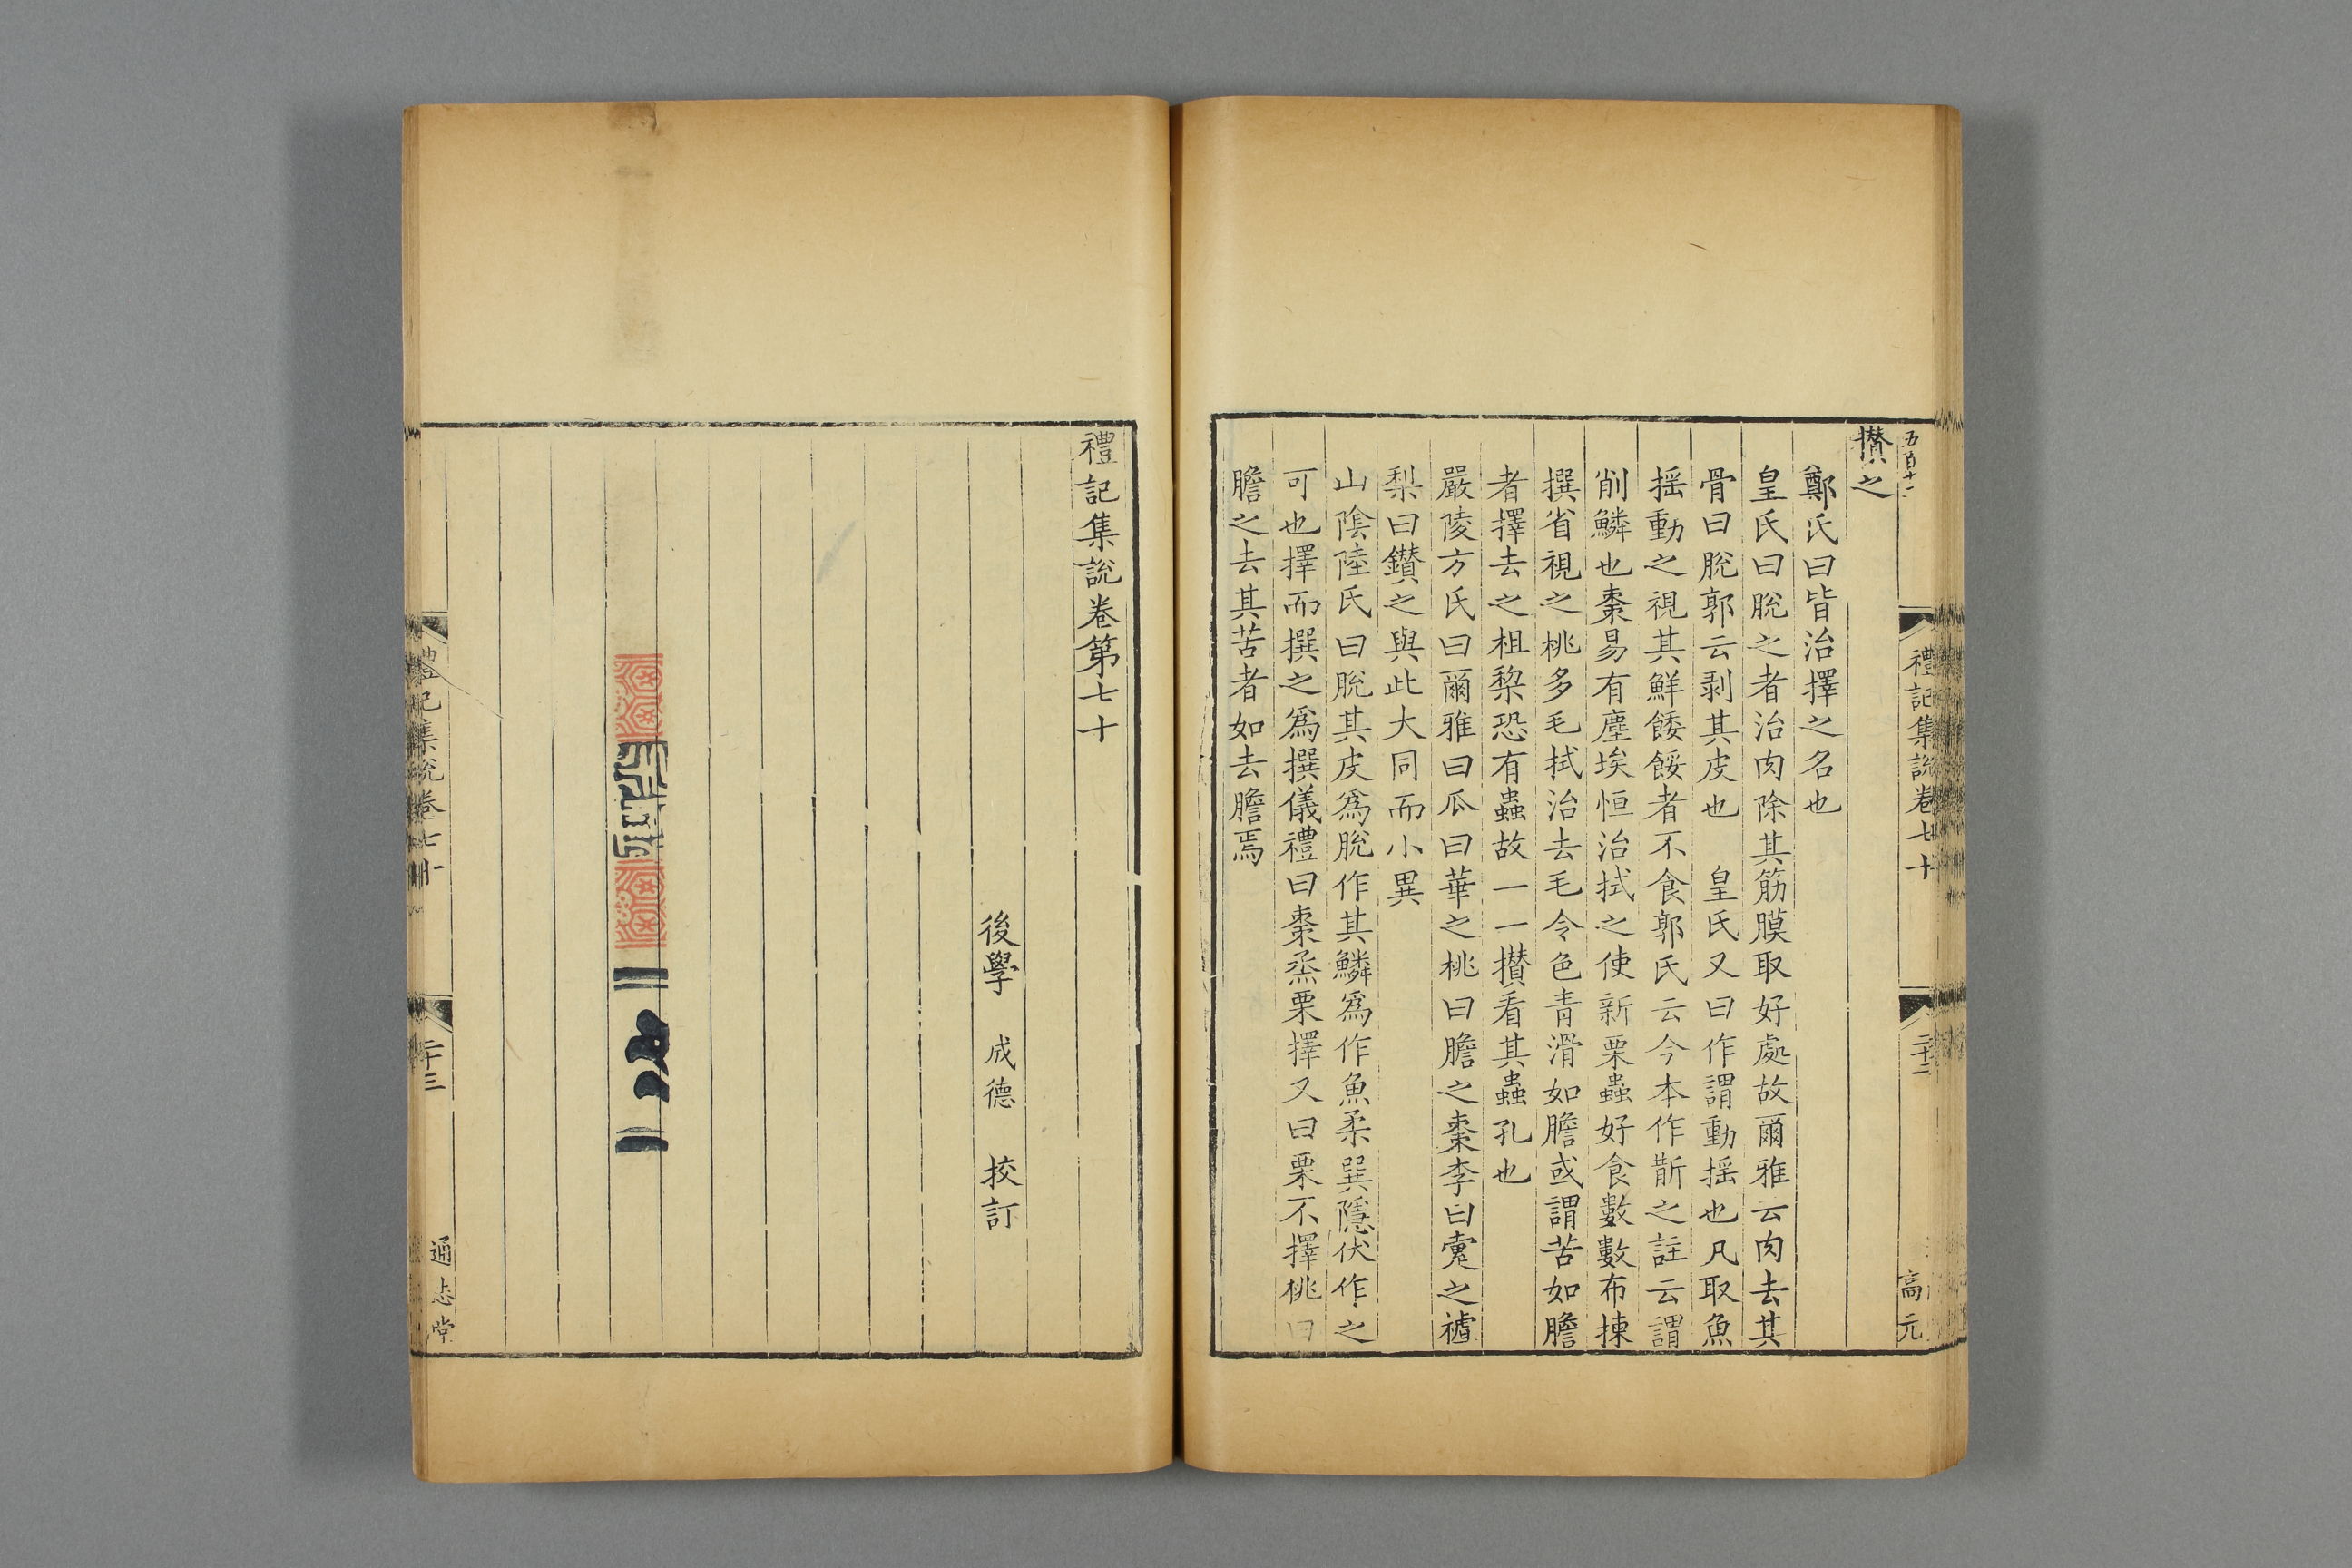 五百十一
禮記集說卷七十
二十二
高元
攢之
鄭氏曰皆治擇之名也
皇氏曰脫之者治肉除其筋膜取好處故爾雅云肉去其
骨曰脫郭云剥其皮也 皇氏又曰作謂動揺也凡取魚
揺動之視其鮮餧餒者不食郭氏云今本作斮之註云謂
削鱗也棗易有塵埃恒治拭之使新栗蟲好食數數布揀
撰省視之桃多毛拭治去毛令色青滑如膽或謂苦如膽
者擇去之柤棃恐有蟲故一一攢看其蟲孔也
嚴陵方氏曰爾雅曰瓜曰華之桃曰膽之棗李曰疐之樝
梨曰鑽之與此大同而小異
山陰陸氏曰脫其皮爲脫作其鱗爲作魚柔巽隱伏作之
可也擇而撰之爲撰儀禮曰棗烝栗擇又曰栗不擇桃曰
膽之去其苦者如去膽焉
禮記集說卷第七十
後學 成德 挍訂
禮記集說卷七十
二十三
通志堂